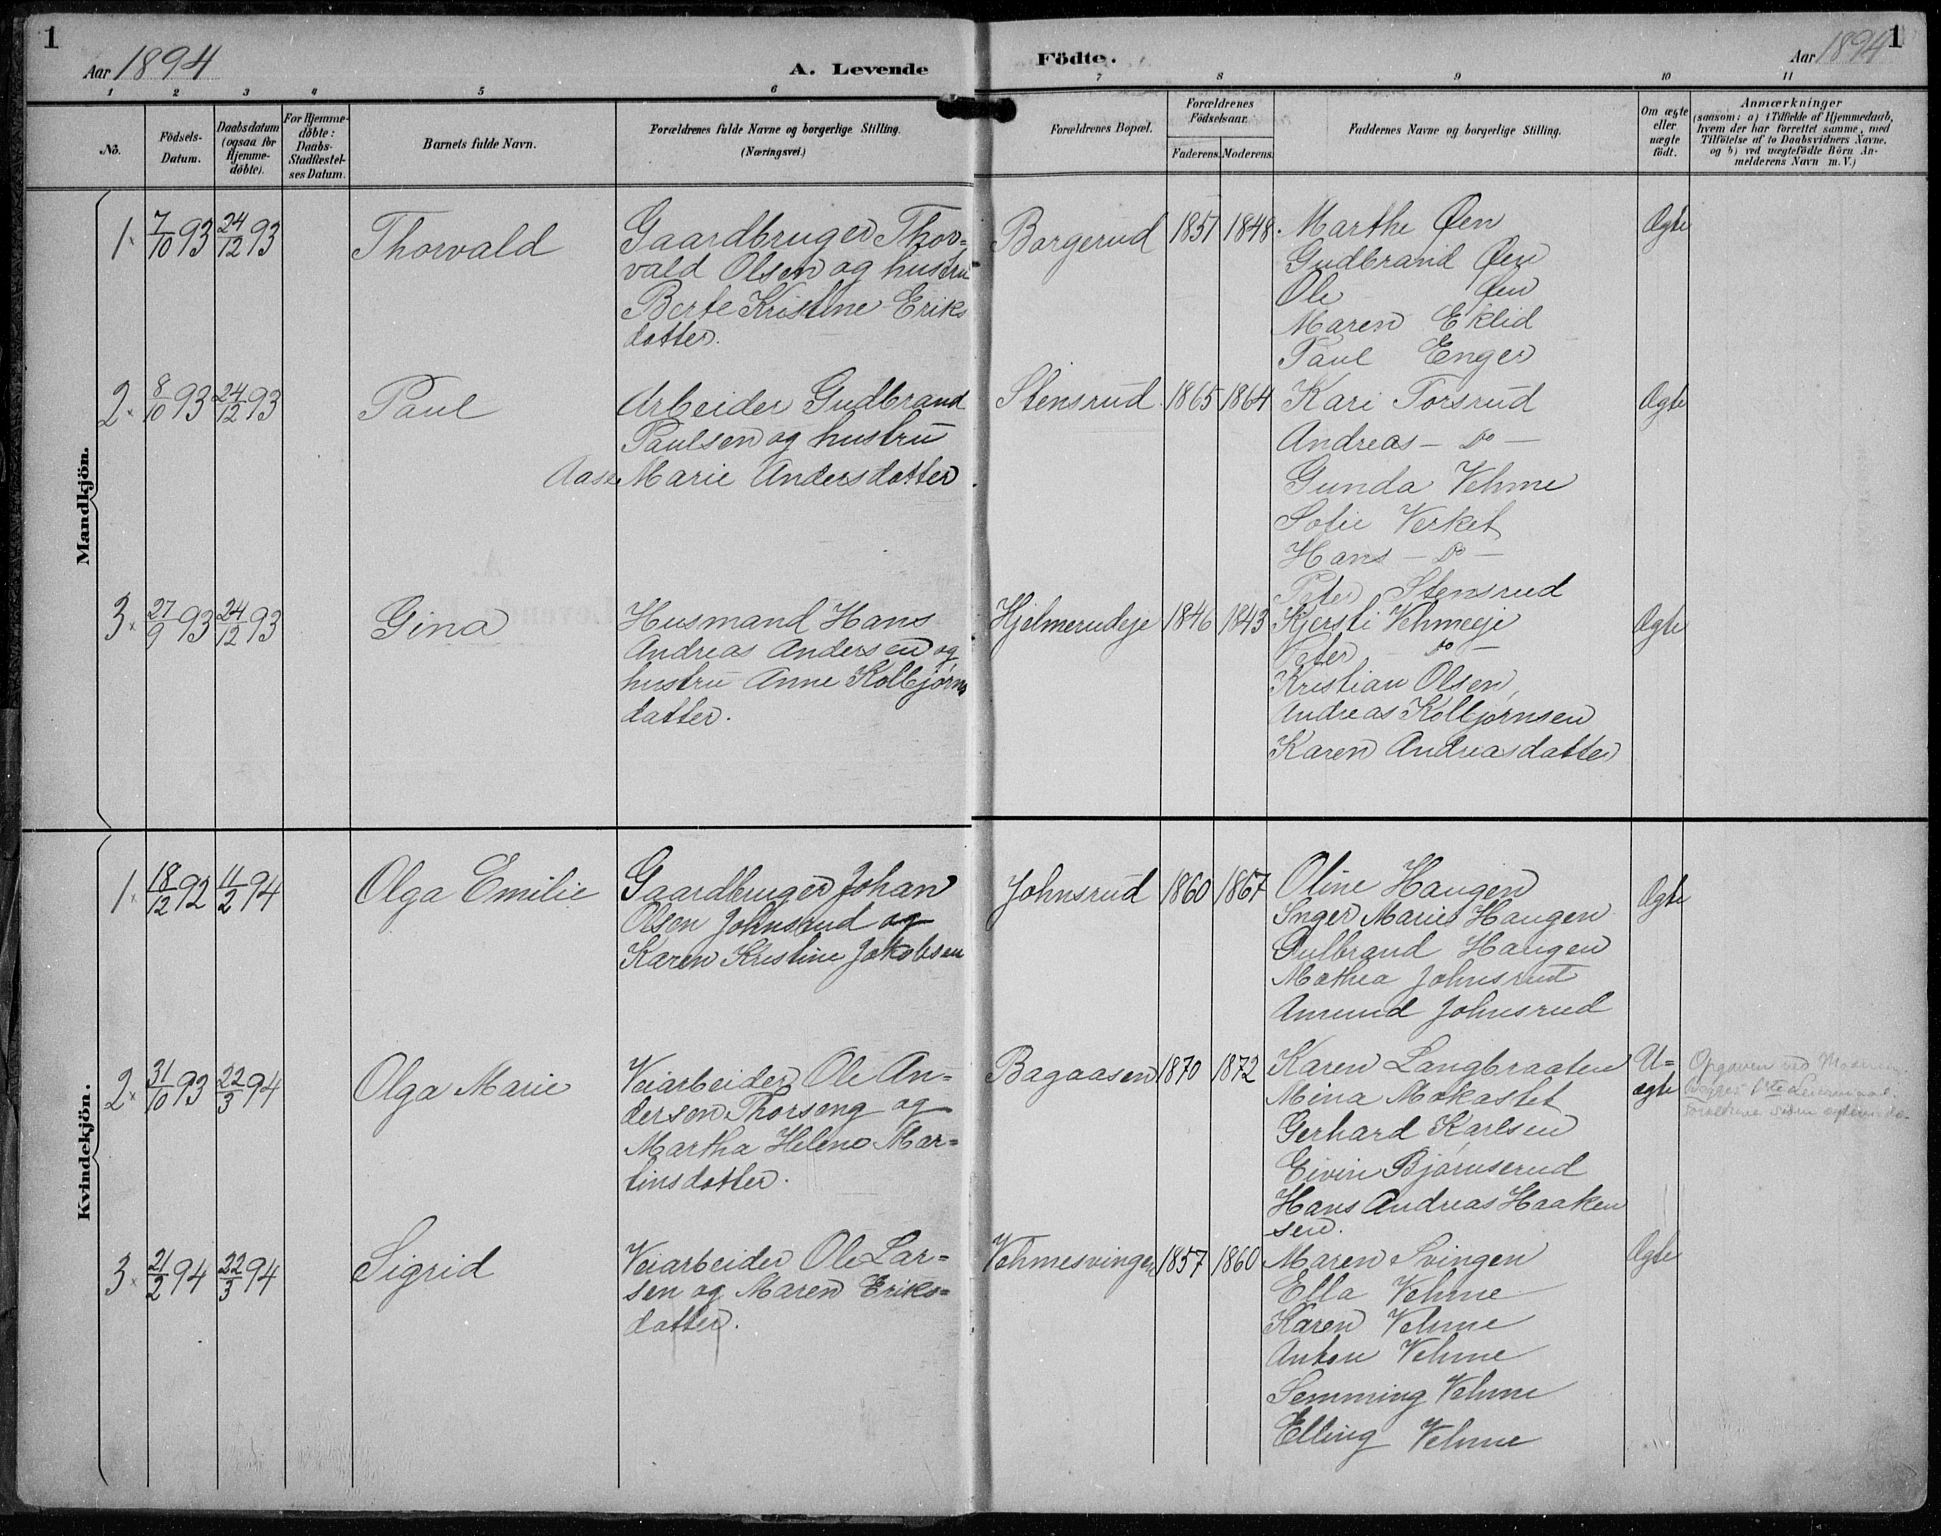 1
Aar 1894
A. Levende
Födte.
Aar 1894
1
1 2 3 4 5 6 7 8 9 10 11
Nô.
Födsels-
Datum.
Daabsdatum
(ogsaa for
Hjemme-
döbte).
For Hjemme-
döbte:
Daabs-
Stadfæstel-
ses Datum.
Barnets fulde Navn.
Forældrenes fulde Navne og borgerlige Stilling.
(Næringsvei.)
Forældrenes Bopæl.
Forældrenes
Födselsaar.
Faderens. Moderens.
Faddernes Navne og borgerlige Stilling.
Om ægte
eller
uægte
födt.
Anmærkninger
(saasom: a) i Tilfælde af Hjemmedaab,
hvem der har forrettet samme, med
Tilföielse af to Daabsvidners Navne,
og b) ved uægtefödte Börn An-
melderens Navn m. V.)
Mandkjön.
1 7/10 93 24/12 93
Thorvald
Gaardbruger Thor-
vald Olsen og hustru
Berte Kristine Eriks
datter.
Borgerud 1851 1848
Marthe Øen
Gudbrand Øen
Ole Øen
Maren Eklid
Paul Enger
Ægte
2 8/10 93 24/12 93
Paul
Arbeider Gudbrand
Paulsen og hustru
Aase Marie Andersdatter
Stensrud 1865 1864
Kari Torsrud
Andreas — Do —
Gunda Vehme
Sofie Verket
Hans — Do —
Peter Stensrud
Ægte
3 27/9 93 24/12 93
Gina
Husmand Hans
Andreas Andersen og
hustru Anne Kolbjørns
datter.
Hjelmerudeje 1846 1843
Kjersti Vehmeeje
Peter — Do —
Kristian Olsen,
Andreas Kolbjørnsen
Karen Andreasdatter
Ægte
Kvindekjön.
1 18/12 92 11/2 94
Olga Emilie
Gaardbruger Johan
Olsen Johnsrud og
Karen Kristine Jakobsen
Johnsrud 1860 1867
Oline Haugen
Inger Marie Haugen
Gulbrand Haugen
Mathea Johnsrud
Amund Johnsrud
Ægte
2 31/10 93 22/3 94
Olga Marie
Veiarbeider Ole An-
dersen Thorseng og
Martha Helene Mar-
tinsdatter.
Bagaasen 1870 1872
Karen Langbraaten
Mina Mokastet
Gerhard Karlsen
Eivin Bjørnserud
Hans Andreas Haaken
sen.
U-
ægte
Opgaven ved Moderen
begges 1ste Leiermaal.
3 21/2 94 22/3 94
Sigrid
Veiarbeider Ole Lar-
sen og Maren Eriks-
datter.
Vehmesvingen 1857 1860
Maren Svingen
Ella Vehme
Karen Vehme
Anton Vehme
Semming Vehme
Elling Vehme
Ægte